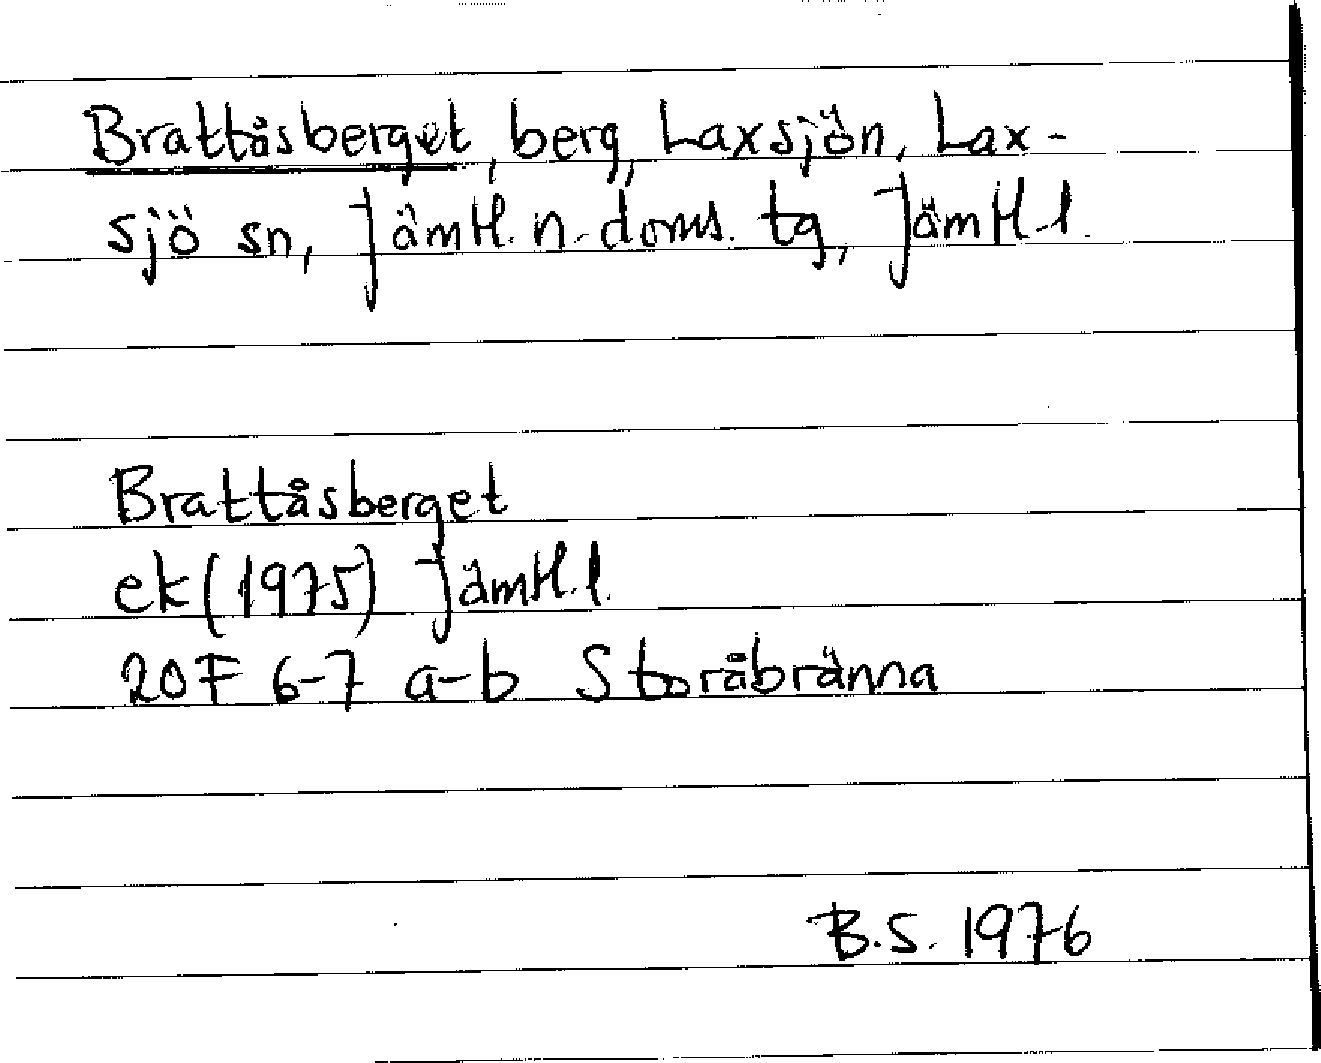 Brattåsberget, berg, Laxsjön, Lax-
sjö sn, Jämtl. n. doms. tg, Jämtl. l.
Brattåsberget
ek (1975) Jämtl. l.
20F 6-7 a-b Storåbränna
B.S. 1976